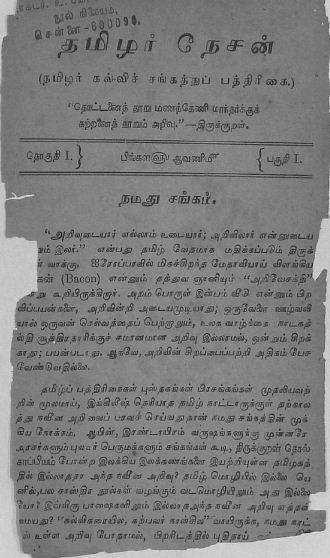 நூல் நிலையம்,
சென்னை-600090.
தமிழர் நேசன்
(தமிழர் கல்விச் சங்கத்துப் பத்திரிகை.)
“தொட்டனைத் தூறு மணற்கேணி மாந்தர்க்குக்
கற்றனைத் தூறும் அறிவு.”—திருக்குறள்.
தொகுதி I. பிங்களளு ஆவணிமீ பகுதி I.
நமது சங்கம்.
“அறிவுடையார் எல்லாம் உடையார்; அறிவிலார் என்னுடைய
ரேனும் இலர்.” என்பது தமிழ் வேதமாக மதிக்கப்படும் திருக்
வாக்கு. ஐரோப்பாவில் மிகச்சிறந்த மேதாவியாய் விளங்கிய
கன் (Bacon) என்னும் தத்துவ ஞானியும் “அறிவேசக்தி”
று கூறியிருக்கிறார். அறம் பொருள் இன்பம் வீடு என்னும் பிற
விப்பயன்களை, அறிவின்றி அடையமுடியாது; ஒருவேளை ஊழ்வலி
யால் ஒருவன் செல்வத்தைப் பெற்றாலும், உலக வாழ்க்கை நாடகத்
தில் சூத்திரதாரிக்குச் சமானமான அறிவு இல்லாமல், ஒன்றும் சிறக்
காது; பயன்படாது. ஆகவே, அறிவின் சிறப்பைப்பற்றி அதிகம் பேச
வேண்டுவதில்லை.
தமிழ்ப் பத்திரிகைகள் புஸ்தகங்கள் பிரசங்கங்கள் முதலியவற்
றின் மூலமாய், இங்கிலீஷ் தெரியாத தமிழ் நாட்டாருக்குள் தற்கால
த்து நவீன அறிவைப் பரவச் செய்வதுதான் நமது சங்கத்தின் முக்
கிய நோக்கம். ஆயின், இரண்டாயிரம் வருஷங்களுக்கு முன்னரே
அரசர்களும் புலவர் பெருமக்களும் சங்கங்கள் கூடி, திருக்குறள் தொல்
காப்பியம் போன்ற இலக்கிய இலக்கணங்களை இயற்றியுள்ள தமிழகத்
தில் இல்லாததா அந்த நவீன அறிவு? தமிழ் மொழியில் இல்லை யெ
னில், பல சாஸ்திர நூல்கள் வழங்கும் வடமொழியிலும் அது இல்லை
யோ? இவ்விரு பாஷைகளிலும் இல்லாத அந்த நவீன அறிவு எத்தன்
மையது? “கல்விகரையில, கற்பவர் நாள்சில” வாயிருக்க, நமது நாட்
ல் உள்ள அறிவு போதாமல், பிறரிடத்தில் புதிதாய்